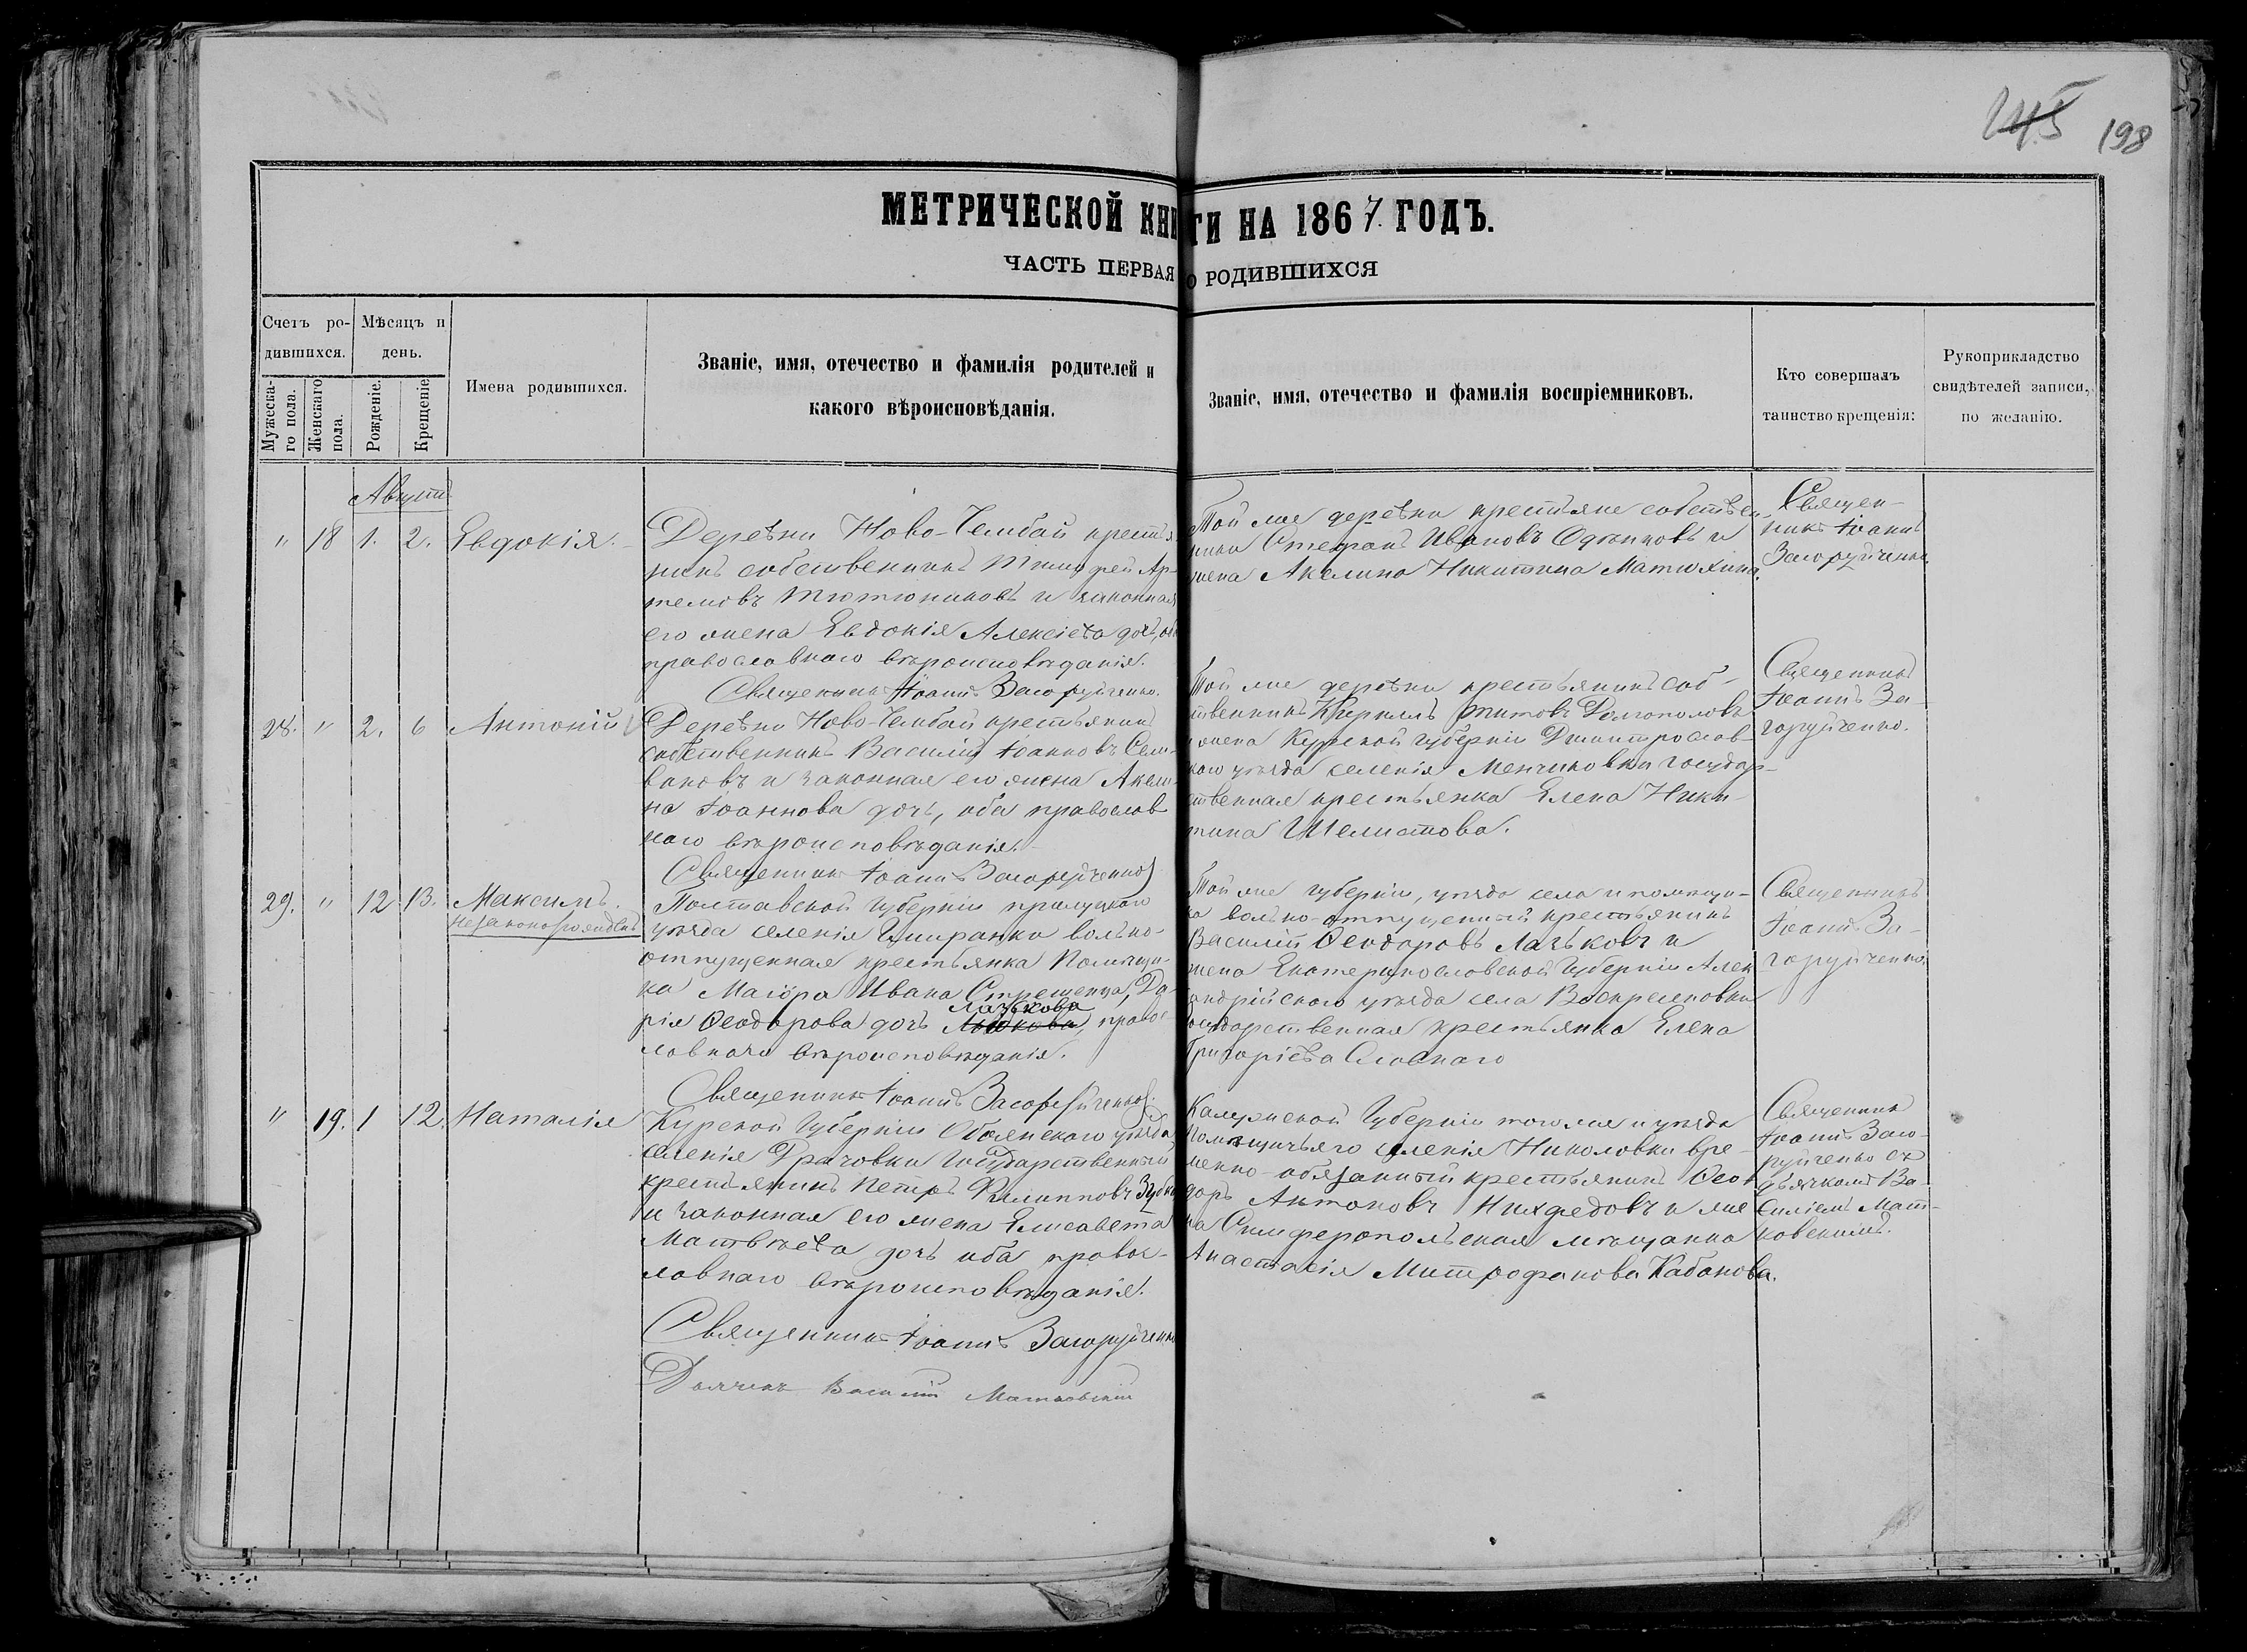 245 198
МЕТРИЧЕСКОЙ КНИГИ НА 1867 ГОДЪ.
ЧАСТЬ ПЕРВАЯ О РОДИВШИХСЯ
Счетъ ро-
дившихся.
Мужеска-
го пола.
Женскаго
пола.
Мѣсяцъ и
день.
Рожденіе.
Крещеніе.
Имена родившихся.
Званіе, имя, отечество и фамилія родителей и
какого вѣроисповѣданія.
Званіе, имя, отечество и фамилія воспріемниковъ.
Кто совершалъ
таинство крещенія:
Рукоприкладство
свидѣтелей записи,
по желанію.
Августъ
" 18 1. 2. Евдокія.
Деревни Ново-Чембай крестья
нинъ собственникъ Тимофей Ар-
темовъ Тютюниковъ и законная
его жена Евдокія Алексіева дочь, оба
православнаго вѣроисповѣданія.
Священникъ Іоаннъ Загоруйченко.
Той же деревни крестьяне собствен
ники Стефанъ Ивановъ и
жена Акелина Никитина Матюхина.
Священ-
никъ Іоаннъ
Загоруйченко.
28. " 2. 6 Антоній
Деревни Ново-Чембай крестьянинъ
собственникъ Василій Іоанновъ Сели-
вановъ и законная его жена Акели-
на Іоаннова дочь, оба православ
наго вѣроисповѣданія.
Священникъ Іоаннъ Загоруйченко
Той же деревни крестьянинъ соб-
ственникъ Кирилъ Титовъ Долгополовъ
и жена Курской губерніи Дмитрослав-
скаго уѣзда селенія Менчиковки государ-
ственная крестьянка Елена Ники-
тина Шелистова.
Священникъ
Іоаннъ За-
горуйченко.
29. " 12 13. Максимъ.
незаконорожденъ
Полтавской губерніи прилуцкаго
уѣзда селенія вольно-
отпущенная крестьянка Помѣщи-
ка Маіора Ивана Да-
рія Ѳеодорова дочь Лазькова, правос-
лавнаго вѣроисповѣданія.
Священникъ Іоаннъ Загоруйченко.
Той же губерніи, уѣзда села и помѣщи-
ка вольно-отпущенный крестьянинъ
Василій Ѳеодоровъ Лазьковъ и
жена Екатеринославской Губерніи Алек
андрійскаго уѣзда села Воскресеновки
Государственная крестьянка Елена
Григоріева
Священникъ
Іоаннъ За-
горуйченко.
" 19. 1 12. Наталія
Курской Губерніи Обоянскаго уѣзда
селенія Драчовки Государственный
крестьянинъ Петръ Филипповъ
и законная его жена Елисавета
Матвѣева дочь оба правос-
лавнаго вѣроисповѣданія.
Священникъ Іоаннъ Загоруйченко
Дьячекъ Василій Матковскій
Калужской Губерніи того же и уѣзда
Помѣщичьяго селенія Николовки вре-
менно-обязанный крестьянинъ Ѳео
доръ Антоновъ и же
на Симферопольская мѣщанка
Анастасія Митрофанова Кабанова.
Священникъ
Іоаннъ Заго-
руйченко съ
дьячкомъ Ва-
силіемъ Мат-
ковскимъ.